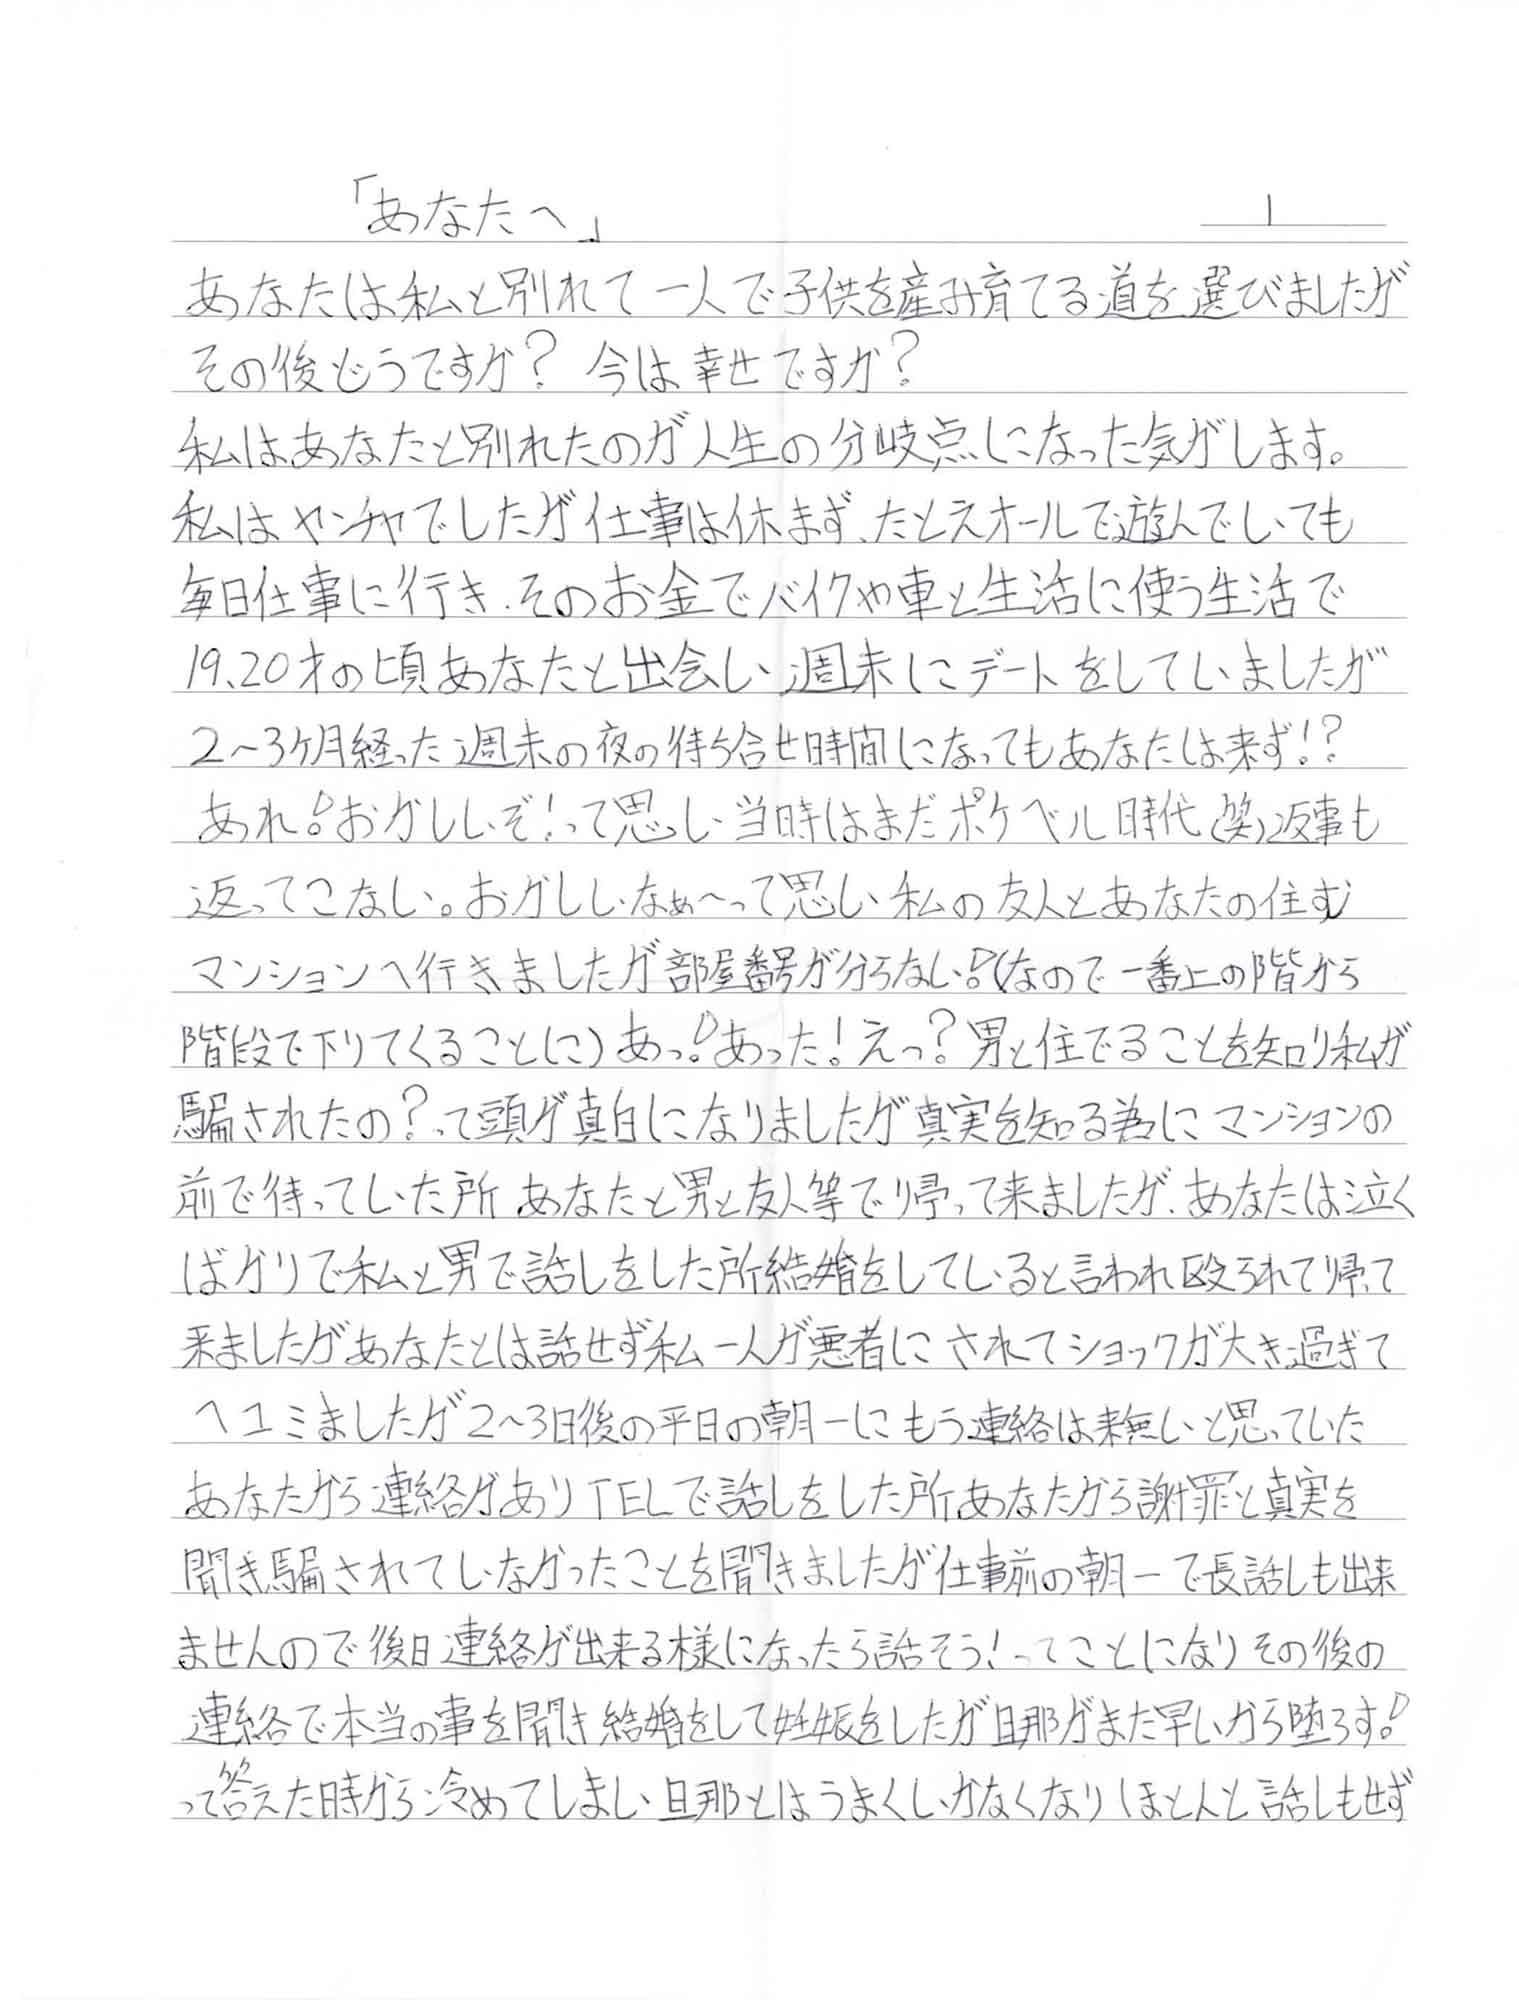 「あなたへ」 1
あなたは私と別れて一人で子供を産み育てる道を選びましたが
その後どうですか？ 今は幸せですか？
私はあなたと別れたのが人生の分岐点になった気がします。
私はヤンチャでしたが仕事は休まず、たとえオールで遊んでいても
毎日仕事に行き、そのお金でバイクや車と生活に使う生活で
19、20才の頃あなたと出会い、週末にデートをしていましたが
2〜3ヶ月経った週末の夜の待ち合せ時間になってもあなたは来ず！？
あれ！おかしいぞ！って思い当時はまだポケベル時代（笑）返事も
返ってこない。おかしいなぁ〜って思い私の友人とあなたの住む
マンションへ行きましたが部屋番号が分らない！（なので一番上の階から
階段で下りてくることに）あっ！あった！えっ？男と住でることを知り私が
騙されたの？って頭が真白になりましたが真実を知る為にマンションの
前で待っていた所あなたと男と友人等で帰って来ましたが、あなたは泣く
ばかりで私と男で話しをした所結婚をしていると言われ殴られて帰って
来ましたがあなたとは話せず私一人が悪者にされてショックが大き過ぎて
ヘコミましたが2〜3日後の平日の朝一にもう連絡は来無いと思っていた
あなたから連絡がありTELで話しをした所あなたから謝罪と真実を
聞き騙されていなかったことを聞きましたが仕事前の朝一で長話しも出来
ませんので後日連絡が出来る様になったら話そう！ってことになりその後の
連絡で本当の事を聞き結婚をして妊娠をしたが旦那がまだ早いから堕ろす！
って答えた時から冷めてしまい旦那とはうまくいかなくなりほとんど話しもせず